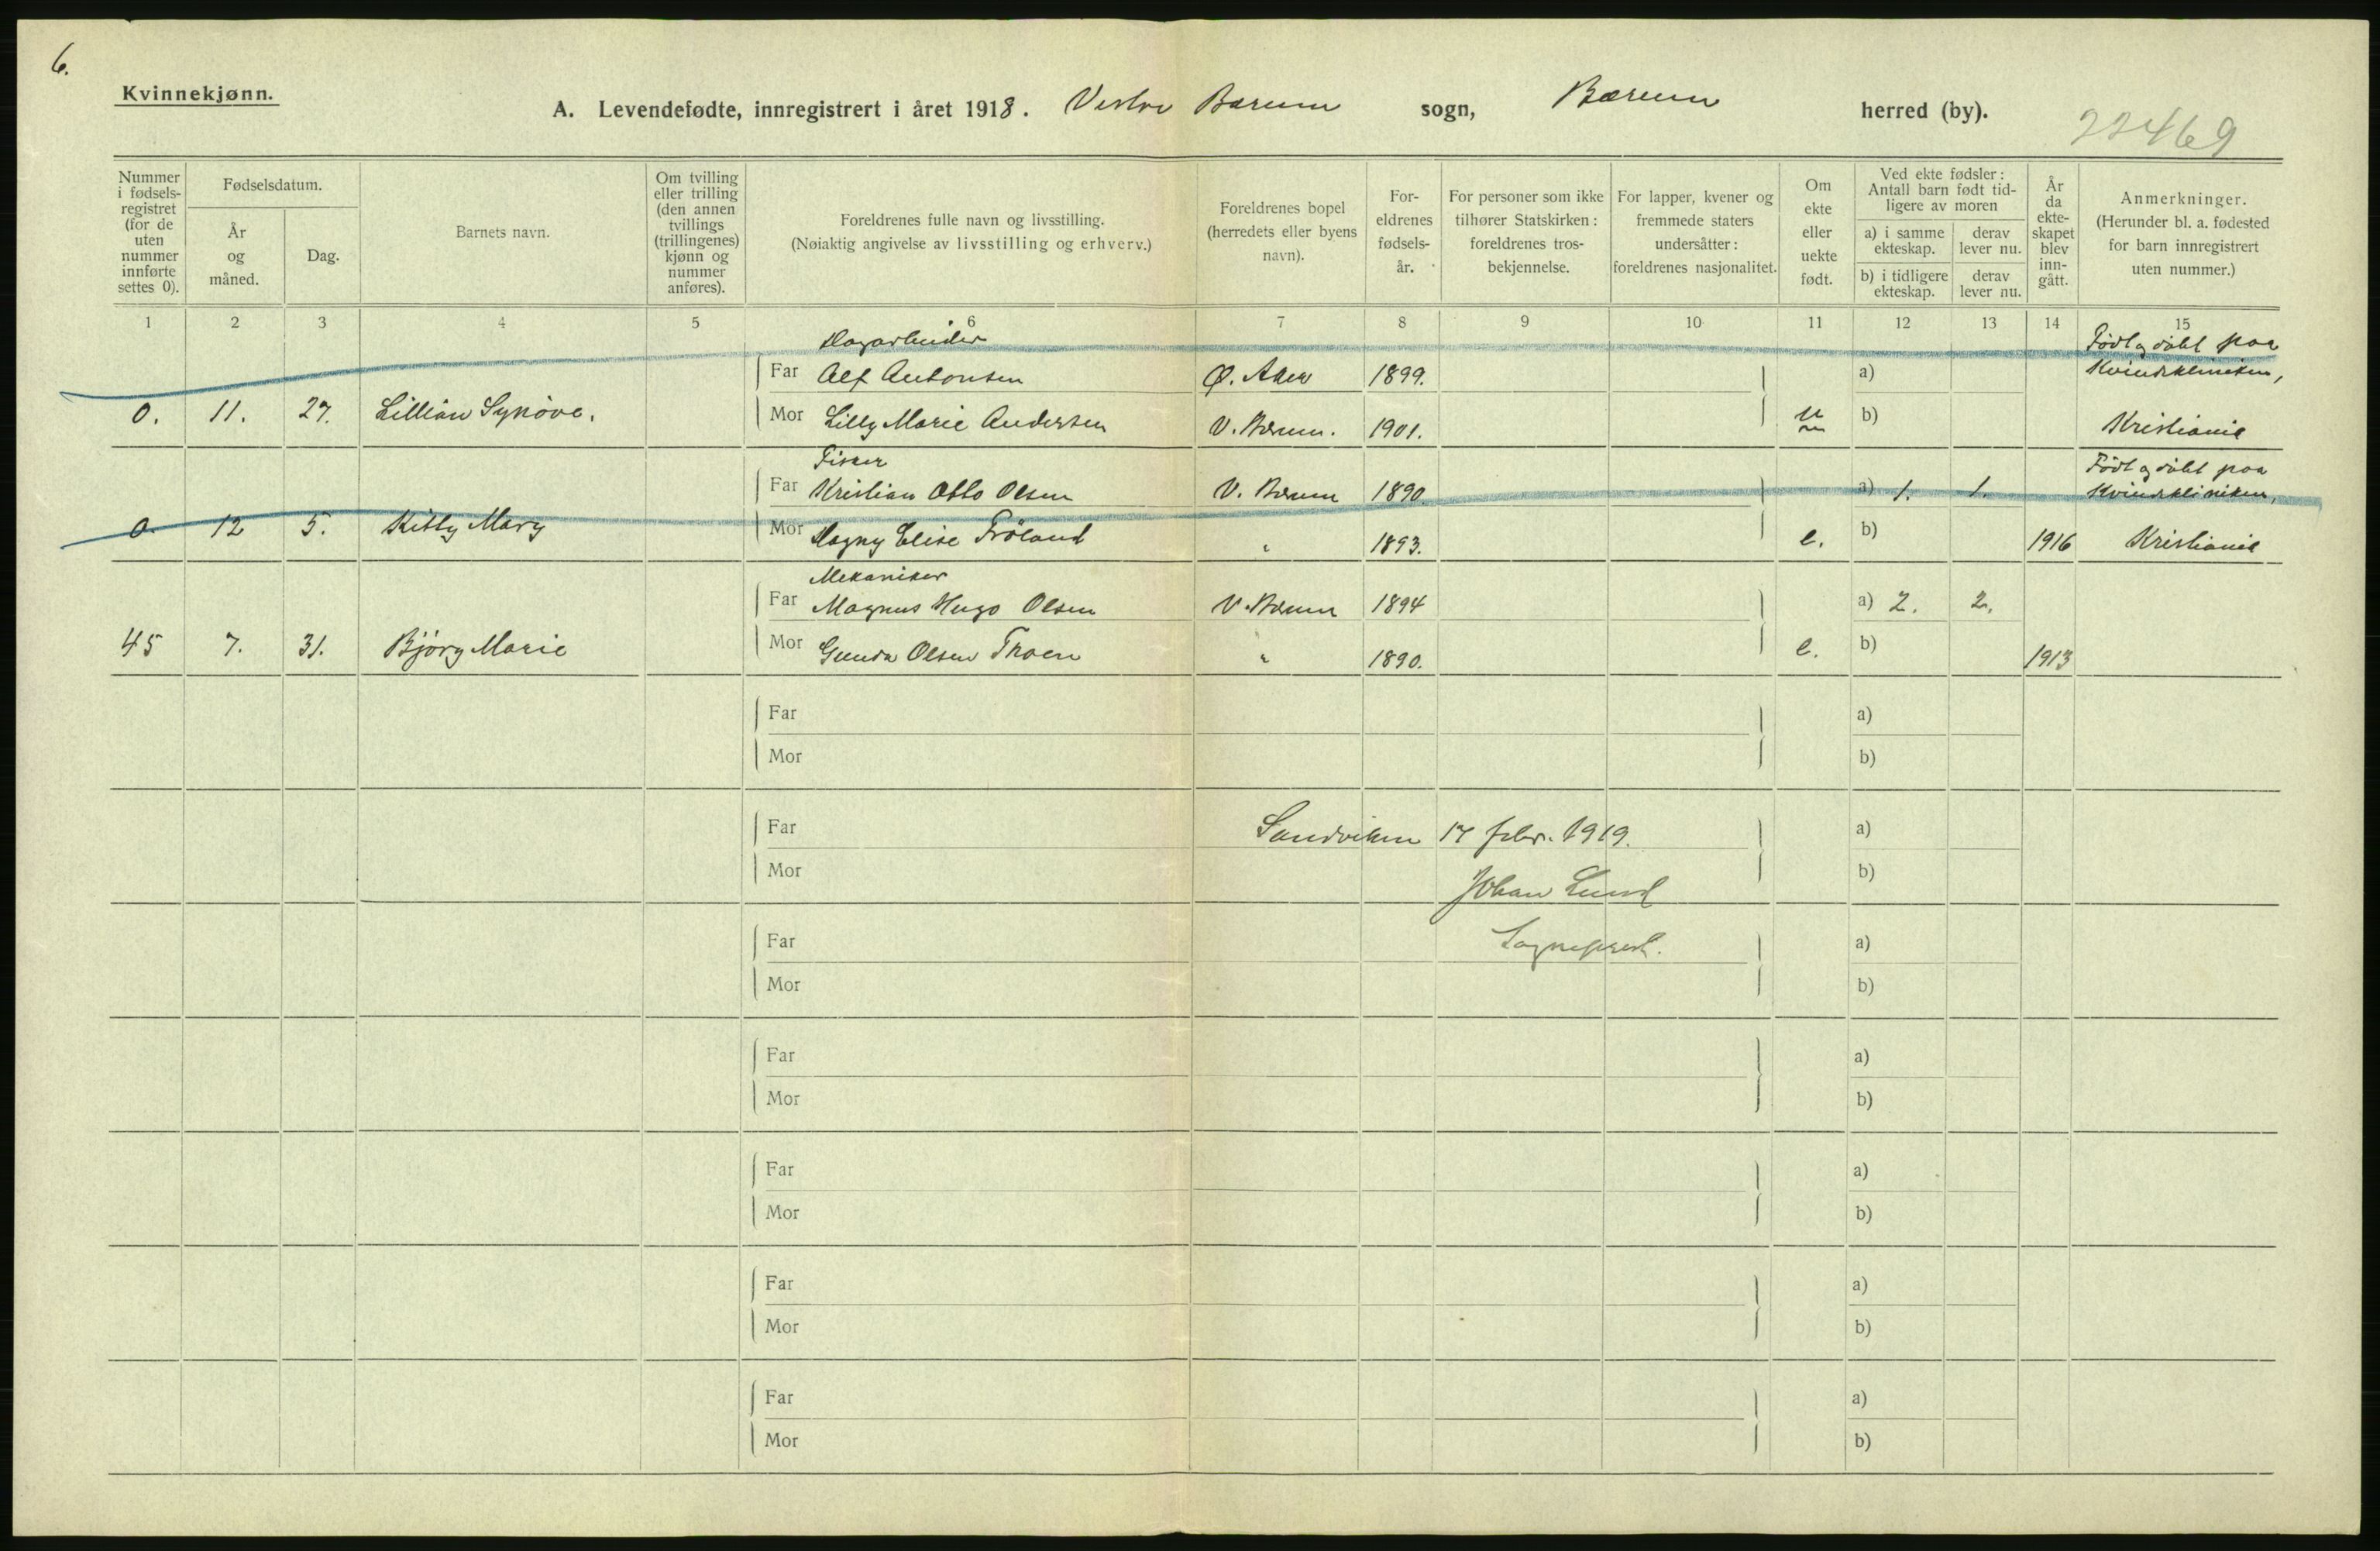 6.
Kvinnekjønn.
A. Levendefødte, innregistrert i året 1918. Vestre Bærum sogn, Bærum herred (by).
22469
Nummer i fødsels-registret (for de uten nummer innførte settes 0).
Fødselsdatum.
År og måned.
Dag.
Barnets navn.
Om tvilling eller trilling (den annen tvillings (trillingenes) kjønn og nummer anføres).
Foreldrenes fulle navn og livsstilling.
(Nøiaktig angivelse av livsstilling og erhverv.)
Foreldrenes bopel (herredets eller byens navn).
For-eldrenes fødsels-år.
For personer som ikke tilhører Statskirken: foreldrenes tros-bekjennelse.
For lapper, kvener og fremmede staters undersåtter: foreldrenes nasjonalitet.
Om ekte eller uekte født.
Ved ekte fødsler: Antall barn født tid-ligere av moren
a) i samme ekteskap.
derav lever nu.
b) i tidligere ekteskap.
derav lever nu.
År da ekte-skapet blev inn-gått.
Anmerkninger.
(Herunder bl. a. fødested for barn innregistrert uten nummer.)
1 2 3 4 5 6 7 8 9 10 11 12 13 14 15
Dagarbeider Født og døbt paa
Far Alf Antonsen Ø. Aker 1899. a) Kvindekliniken,
0. 11. 27. Lillian Synöve. Mor Lilly Marie Andersen V. Bærum. 1901. u b) Kristiania
Fisker Født og døbt paa
Far Kristian Otto Olsen V. Bærum 1890 a) 1. 1. Kvindekliniken,
0 12 5. Kitty Mary Mor Dagny Elise Fröland " 1893. e. b) 1916 Kristiania
Mekaniker
Far Magnus Hugo Olsen V. Bærum 1894 a) 2. 2.
45 7. 31. Bjørg Marie Mor Gunda Olsen Thoen " 1890. e. b) 1913
Far a)
Mor b)
Far Sandviken 17 febr. 1919. a)
Mor Johan Lund b)
Far Sogneprest. a)
Mor b)
Far a)
Mor b)
Far a)
Mor b)
Far a)
Mor b)
Far a)
Mor b)